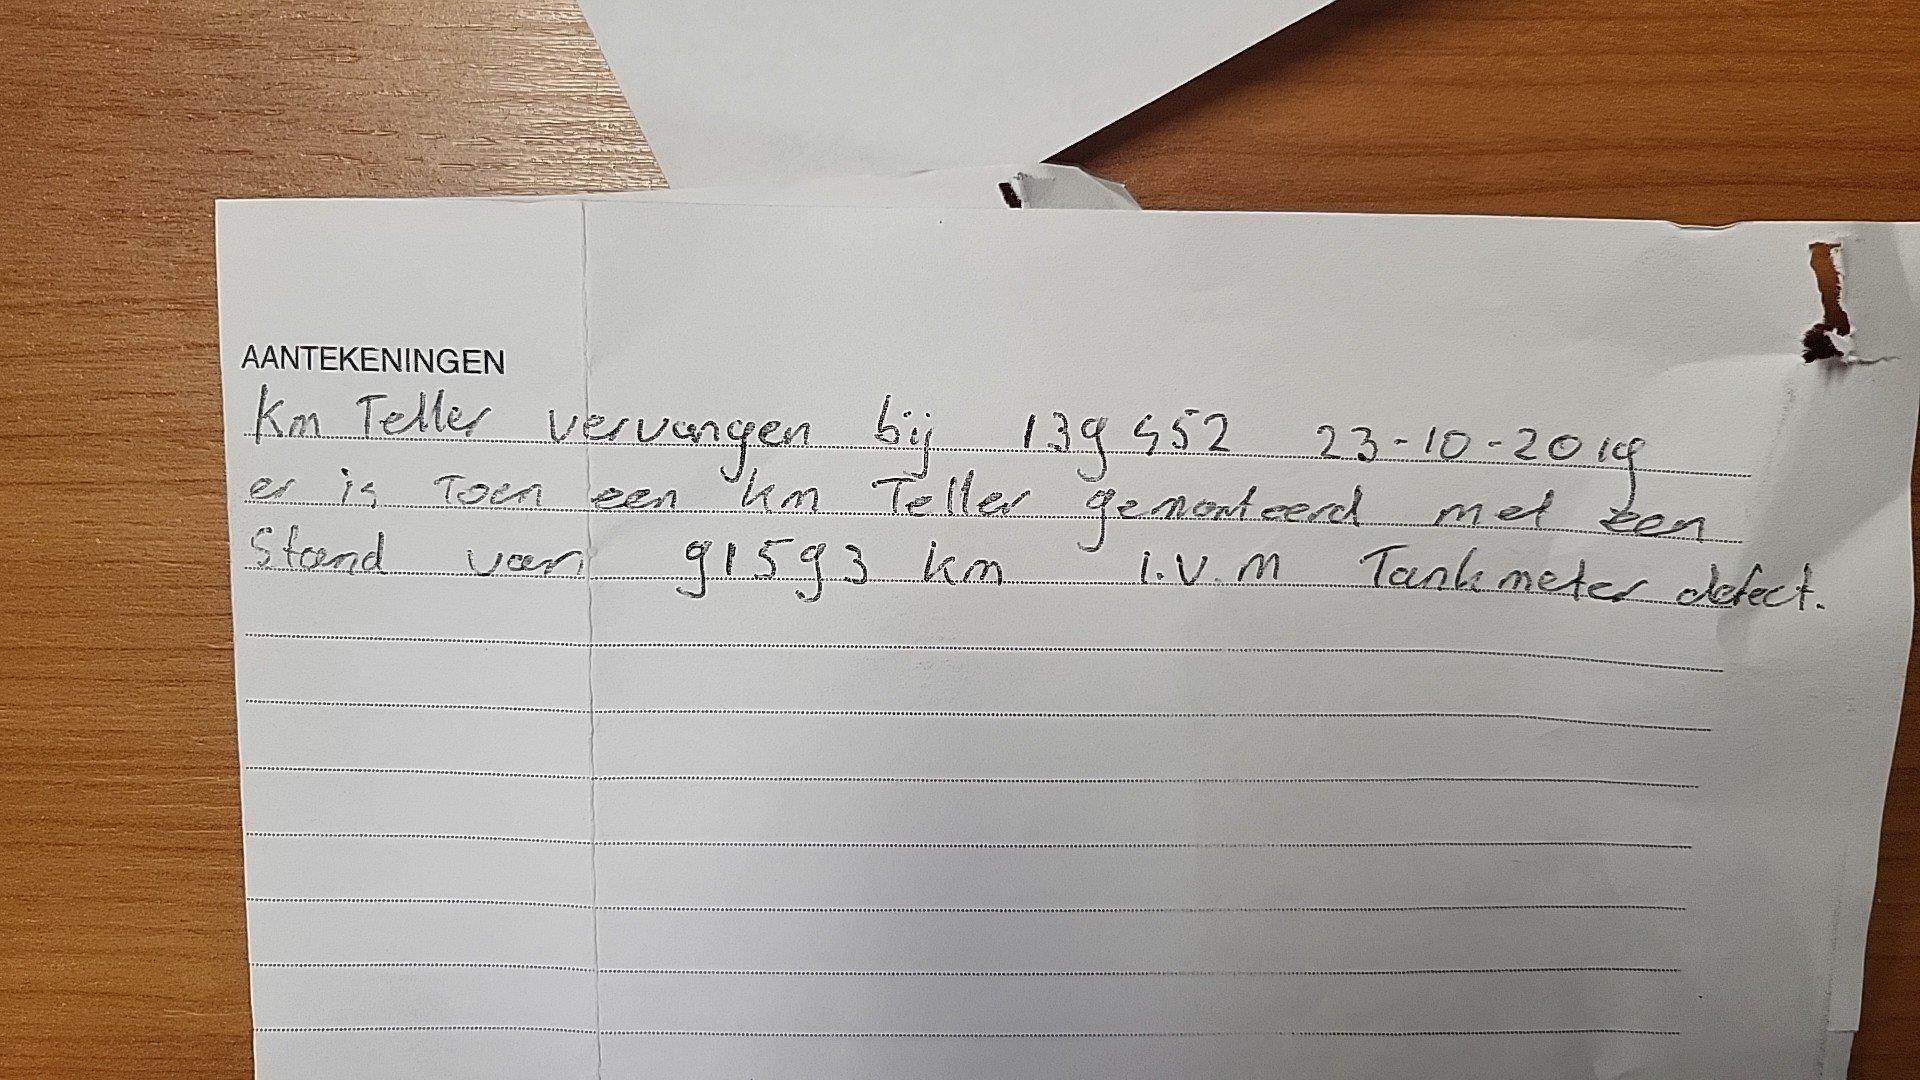 AANTEKENINGEN
Km Teller vervangen bij 139452 23-10-2019
er is Toen een km Teller gemonteerd met een
Stand van 91593 km i.v.m Tankmeter defect.